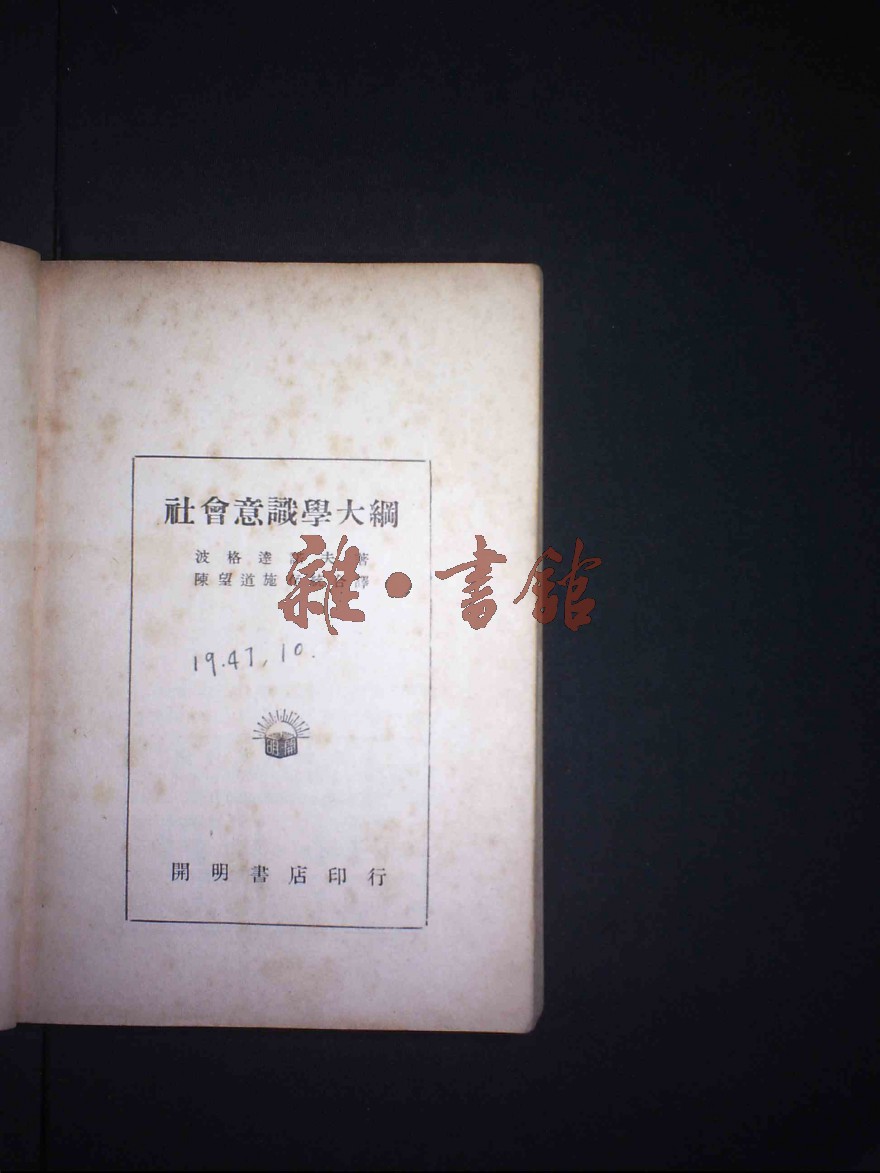 社會意識學大綱
波格達 夫 著
陳望道施 譯
雜·書館
19.47,10.
開明
開明書店印行